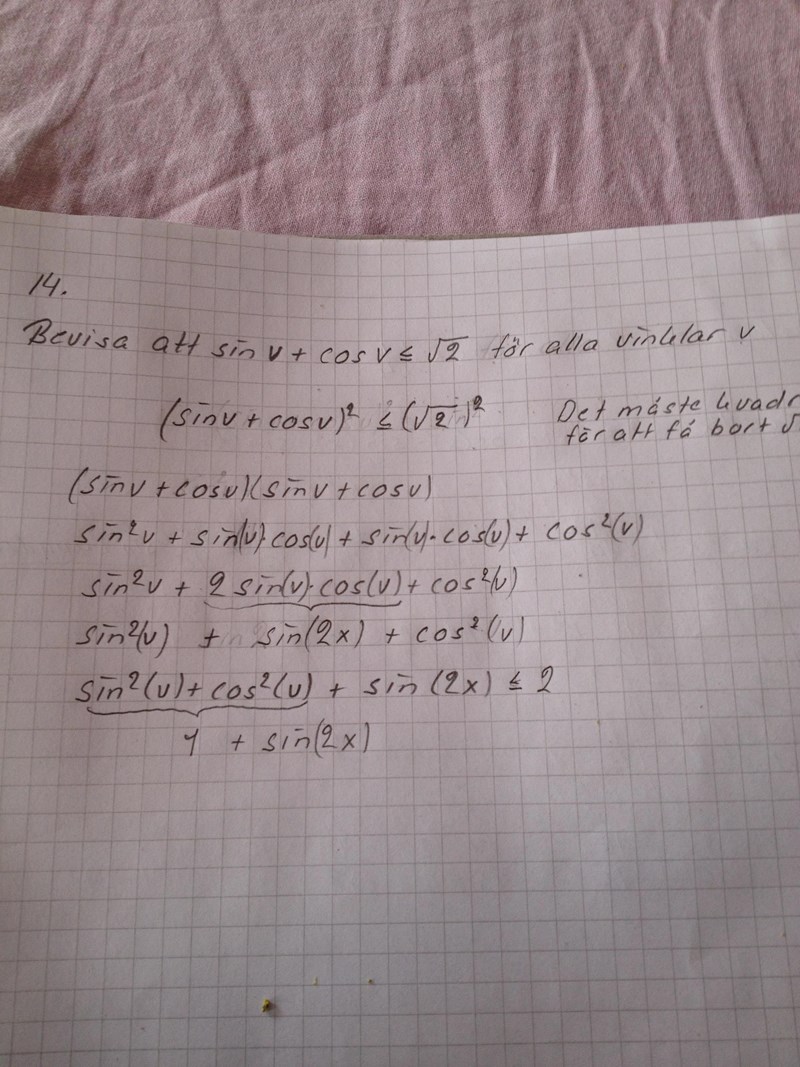 14.
Bevisa att sin v + cos v ≤ √2 för alla vinklar v
(sinv + cosv)² ≤ (√2)² Det måste
för att få bort √
(sinv + cosv)(sinv + cosv)
sin²v + sin(v)·cos(v) + sin(v)·cos(v) + cos²(v)
sin²v + 2 sin(v)·cos(v) + cos²(v)
sin²(v) + sin(2x) + cos²(v)
sin²(v) + cos²(v) + sin(2x) ≤ 2
1 + sin(2x)